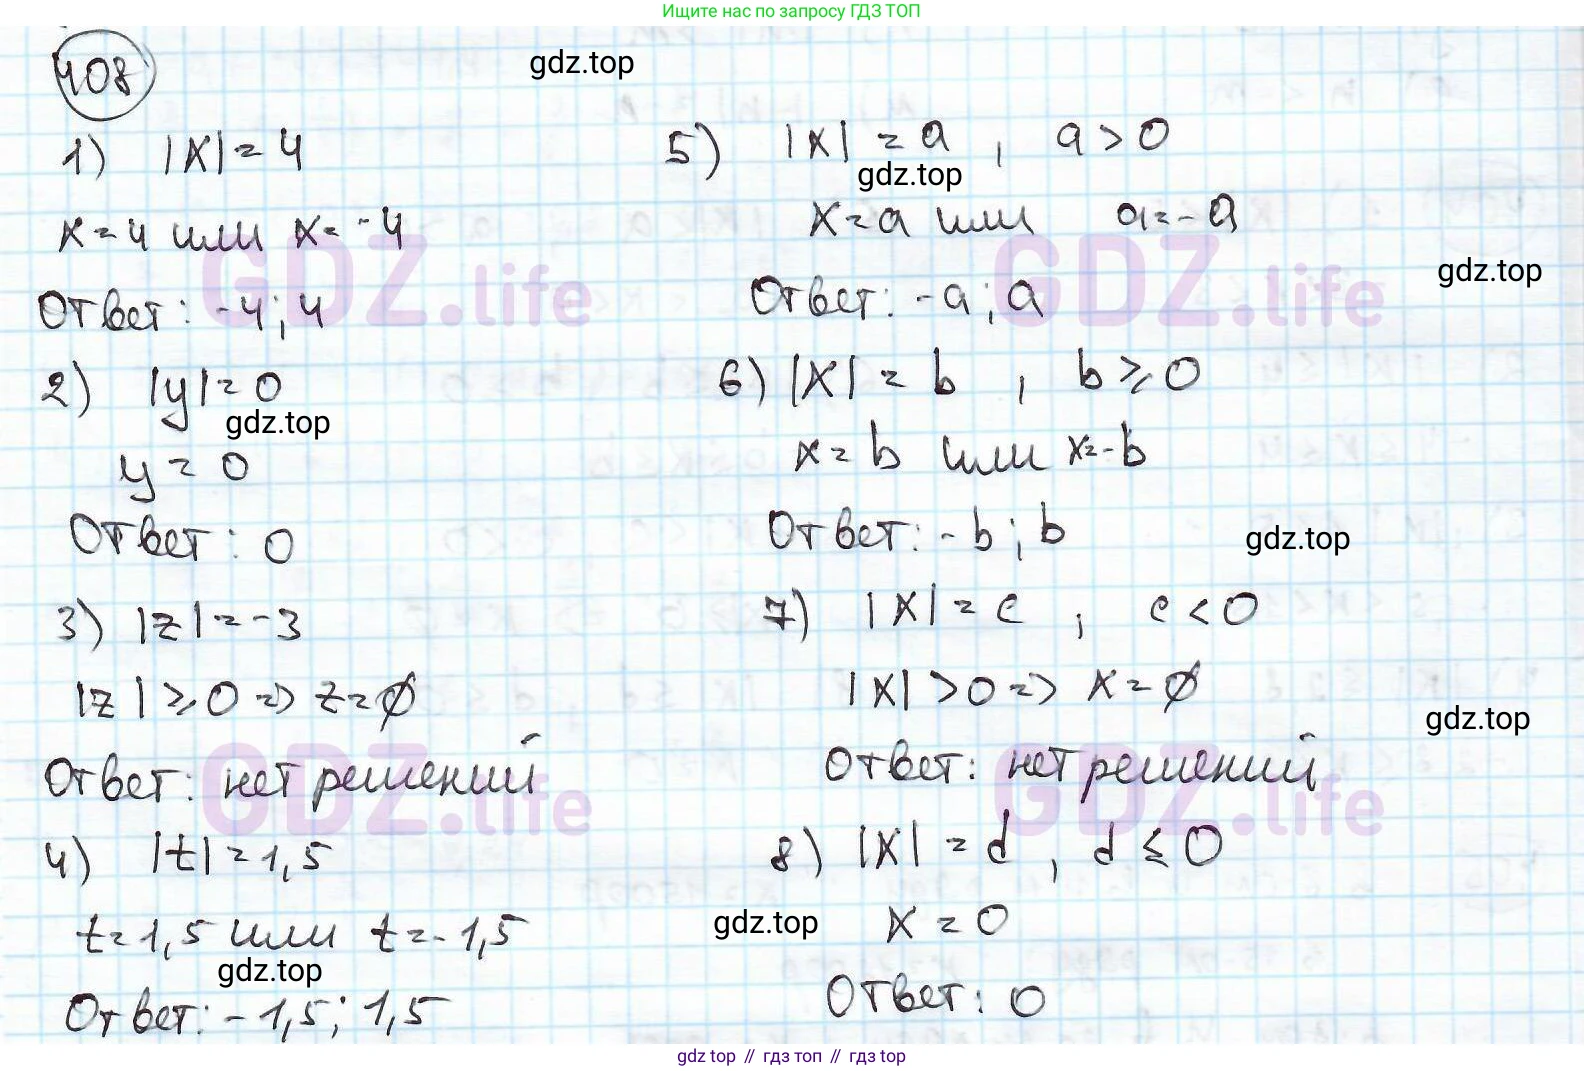 Ищите нас по запросу ГДЗ ТОП
408
gdz.top
1) |x| = 4
x = 4 или x = -4
Ответ: -4; 4
2) |y| = 0
gdz.top
y = 0
Ответ: 0
3) |z| = -3
|z| ⩾ 0 => z = ∅
Ответ: нет решений
4) |t| = 1,5
t = 1,5 или t = -1,5
gdz.top
Ответ: -1,5; 1,5
5) |x| = a, a > 0
gdz.top
x = a или a = -a
gdz.top
Ответ: -a; a
6) |x| = b, b ⩾ 0
x = b или x = -b
Ответ: -b; b
gdz.top
7) |x| = c, c < 0
|x| > 0 => x = ∅
gdz.top
Ответ: нет решений
8) |x| = d, d ≤ 0
gdz.top
x = 0
Ответ: 0
GDZ.life
GDZ.life
GDZ.life
GDZ.life
gdz top // гдз топ // гдз top